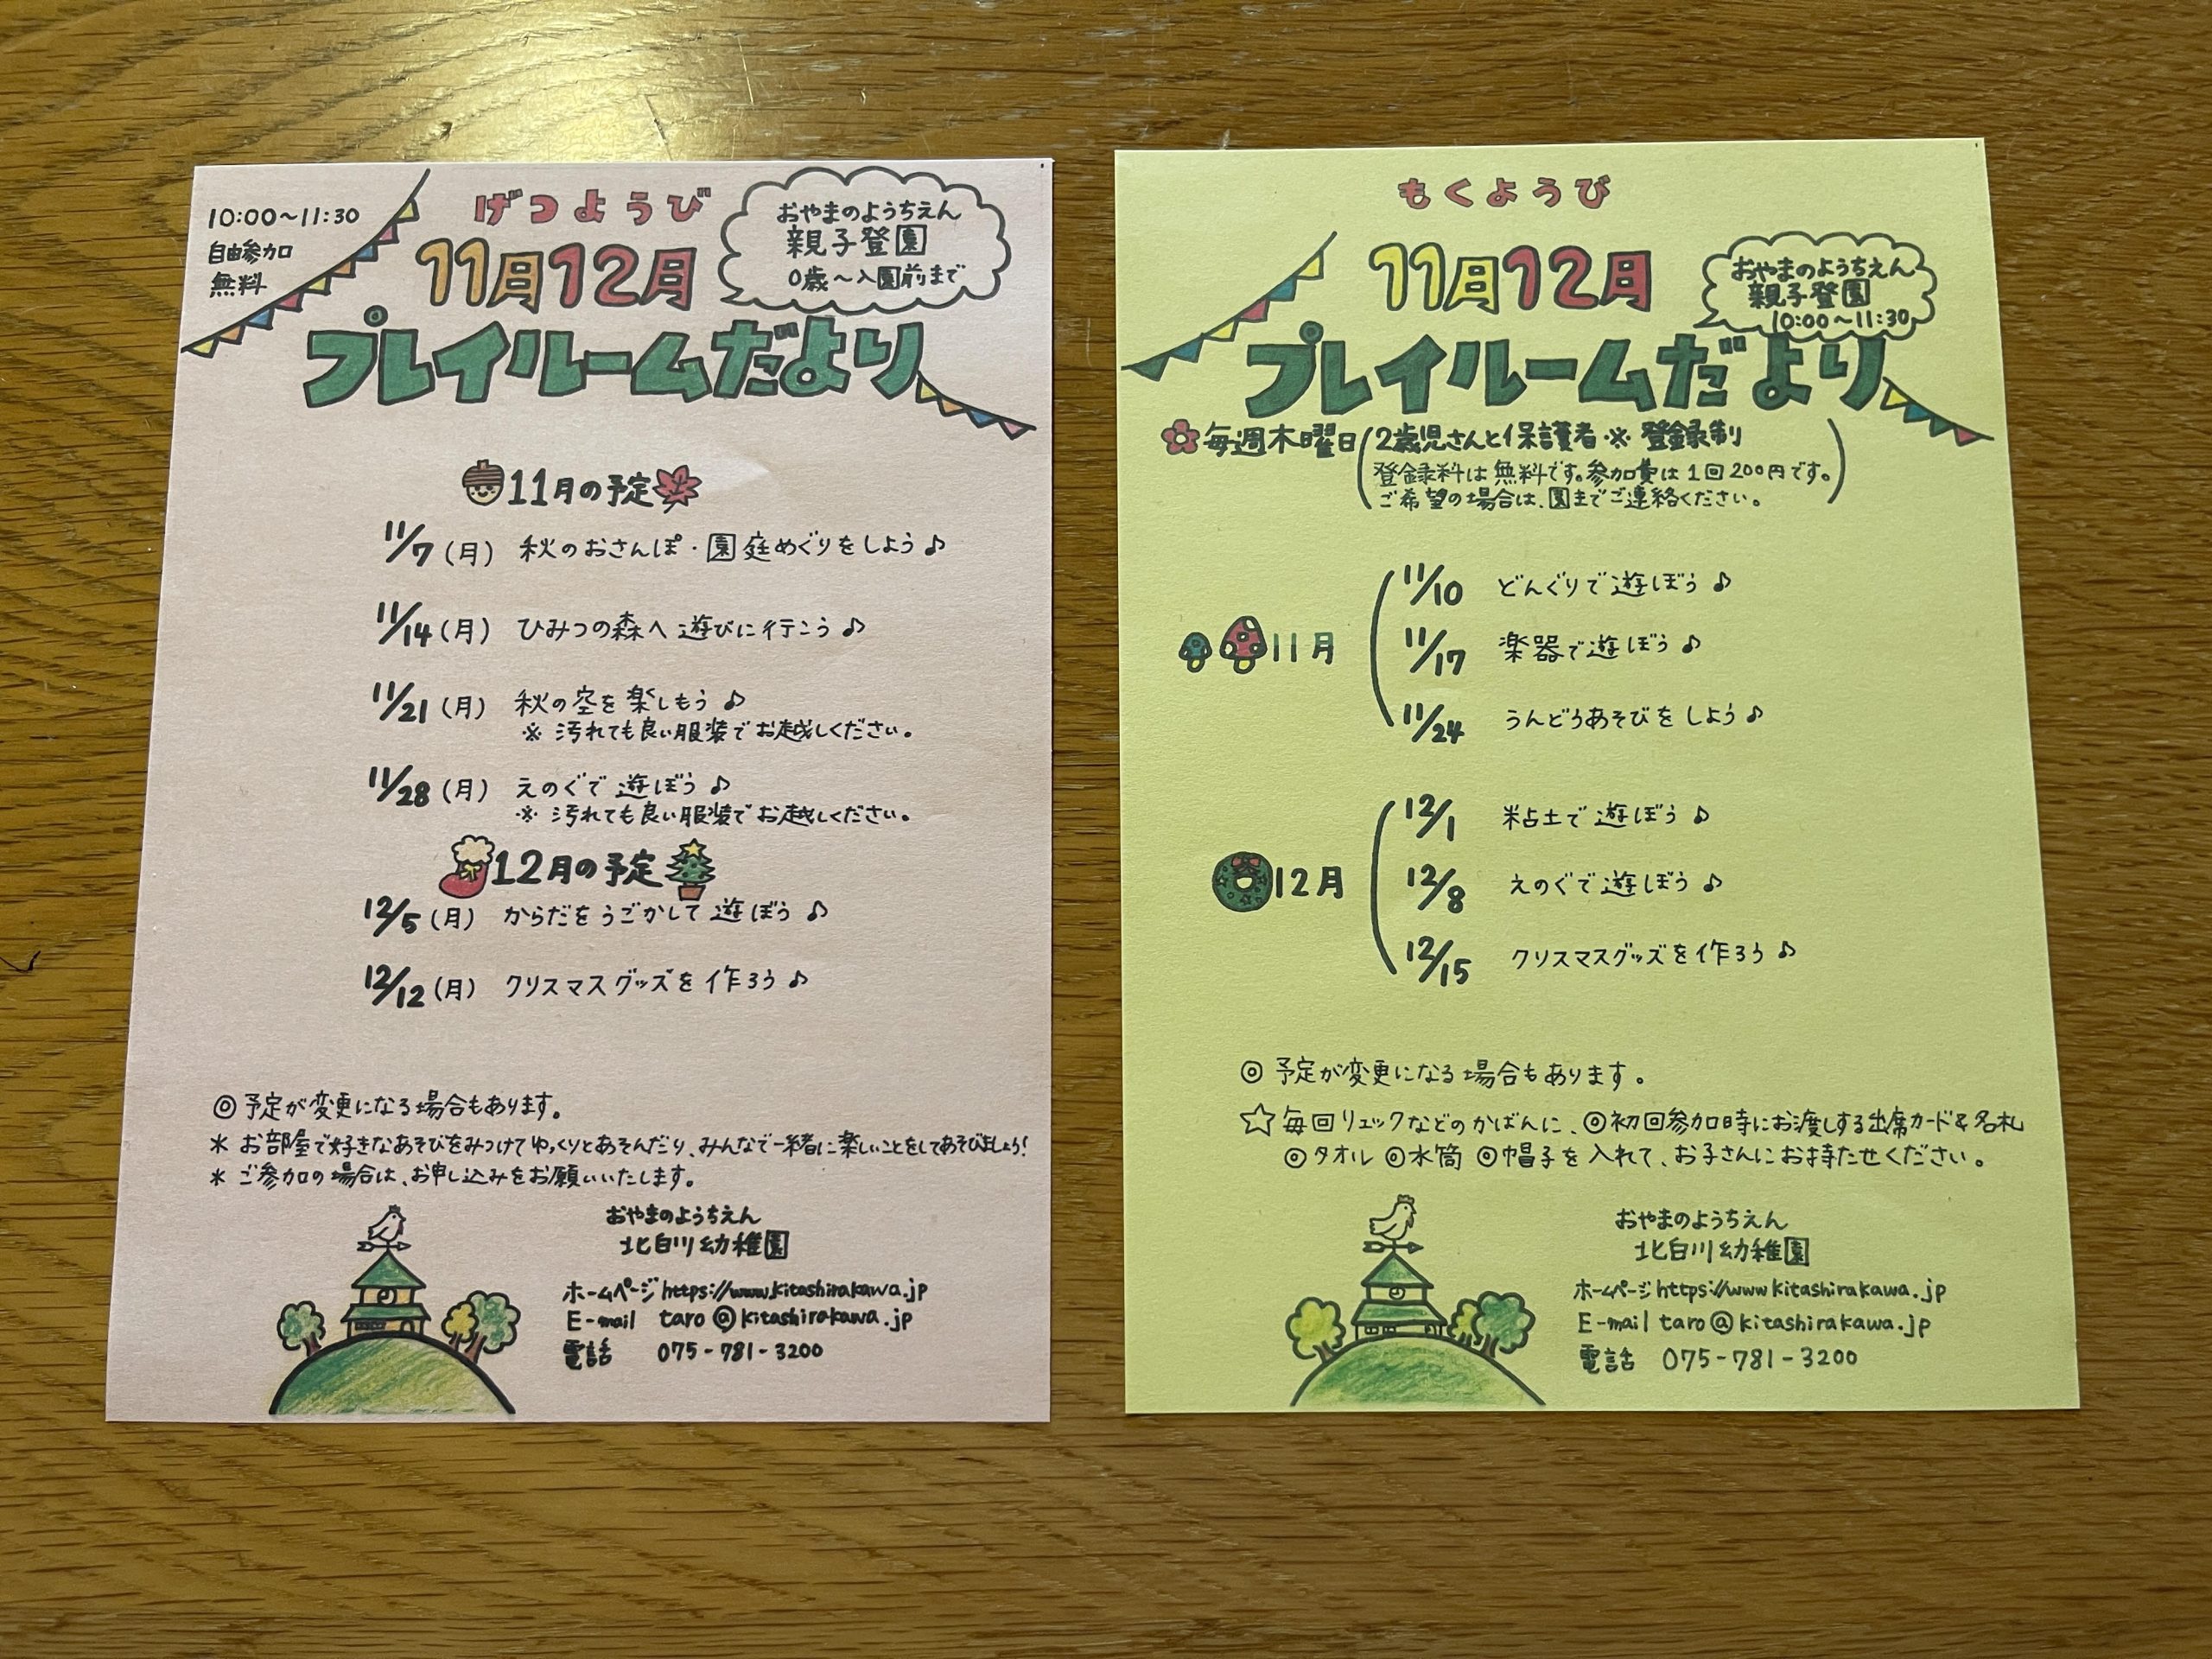 10:00〜11:30
自由参加
無料
げつようび
11月12月
プレイルームだより
おやまのようちえん
親子登園
0歳〜入園前まで
11月の予定
11/7(月) 秋のおさんぽ・園庭めぐりをしよう♪
11/14(月) ひみつの森へ遊びに行こう♪
11/21(月) 秋の空を楽しもう♪
※汚れても良い服装でお越しください。
11/28(月) えのぐで遊ぼう♪
※汚れても良い服装でお越しください。
12月の予定
12/5(月) からだをうごかして遊ぼう♪
12/12(月) クリスマスグッズを作ろう♪
◎予定が変更になる場合もあります。
* お部屋で好きなあそびをみつけてゆっくりとあそんだり、みんなで一緒に楽しいことをしてあそびましょう!
* ご参加の場合は、お申し込みをお願いいたします。
おやまのようちえん
北白川幼稚園
ホームページ https://www.kitashirakawa.jp
E-mail taro@kitashirakawa.jp
電話 075-781-3200
もくようび
11月12月
プレイルームだより
おやまのようちえん
親子登園
10:00〜11:30
毎週木曜日(2歳児さんと保護者※登録制
登録料は無料です。参加費は1回200円です。
ご希望の場合は、園までご連絡ください。)
11月
11/10 どんぐりで遊ぼう♪
11/17 楽器で遊ぼう♪
11/24 うんどうあそびをしよう♪
12月
12/1 粘土で遊ぼう♪
12/8 えのぐで遊ぼう♪
12/15 クリスマスグッズを作ろう♪
◎予定が変更になる場合もあります。
☆毎回リュックなどのかばんに、◎初回参加時にお渡しする出席カード&名札
◎タオル ◎水筒 ◎帽子を入れて、お子さんにお持たせください。
おやまのようちえん
北白川幼稚園
ホームページ https://www.kitashirakawa.jp
E-mail taro@kitashirakawa.jp
電話 075-781-3200